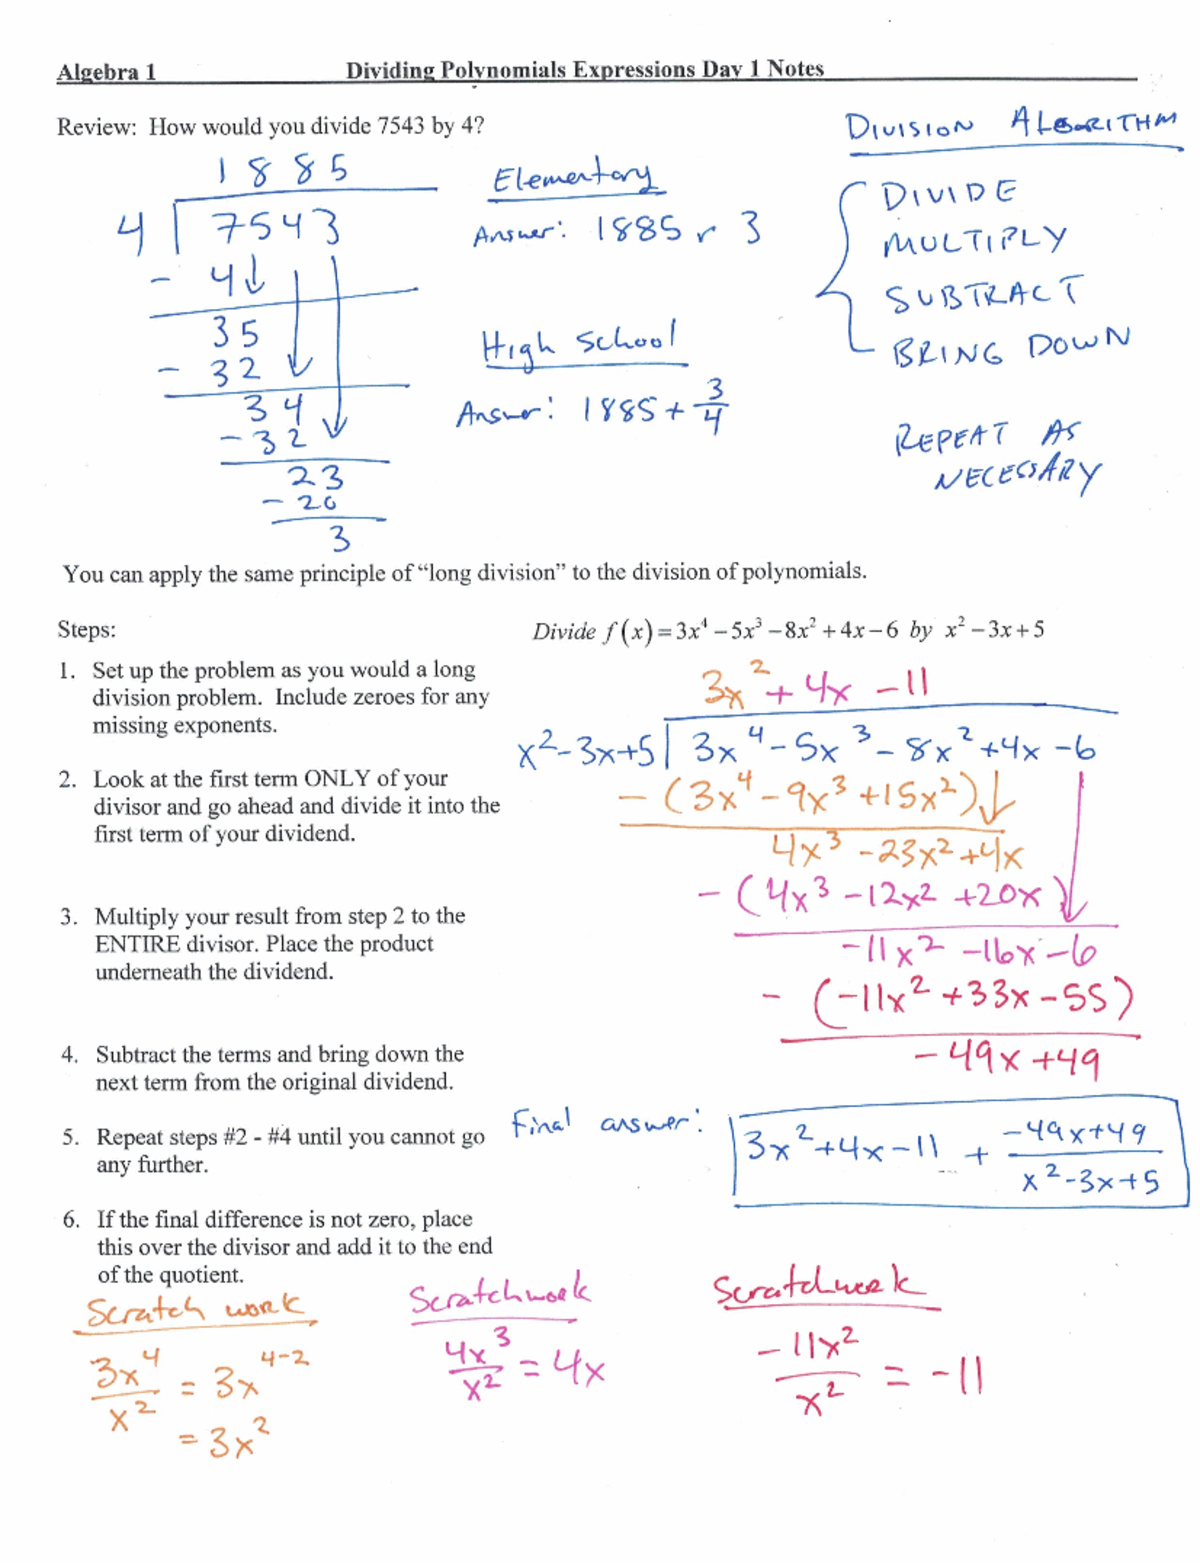 Algebra 1 Dividing Polynomials Expressions Day 1 Notes
Review: How would you divide 7543 by 4?
1885
4 7543
- 4
35
- 32
34
- 32
23
- 20
3
Elementary
Answer: 1885 r 3
High School
Answer: 1885 + 3/4
DIVISION ALGORITHM
DIVIDE
MULTIPLY
SUBTRACT
BRING DOWN
REPEAT AS
NECESSARY
You can apply the same principle of “long division” to the division of polynomials.
Steps:
1. Set up the problem as you would a long
division problem. Include zeroes for any
missing exponents.
2. Look at the first term ONLY of your
divisor and go ahead and divide it into the
first term of your dividend.
3. Multiply your result from step 2 to the
ENTIRE divisor. Place the product
underneath the dividend.
4. Subtract the terms and bring down the
next term from the original dividend.
5. Repeat steps #2 - #4 until you cannot go
any further.
6. If the final difference is not zero, place
this over the divisor and add it to the end
of the quotient.
Divide f(x)=3x⁴−5x³−8x²+4x−6 by x²−3x+5
3x²+4x−11
x²−3x+5 3x⁴−5x³−8x²+4x−6
−(3x⁴−9x³+15x²)
4x³−23x²+4x
−(4x³−12x²+20x)
−11x²−16x−6
−(−11x²+33x−55)
−49x+49
Final answer: 3x²+4x−11 + (−49x+49)/(x²−3x+5)
Scratch work
3x⁴/x² = 3x⁴⁻²
= 3x²
Scratchwork
4x³/x² = 4x
Scratchwork
−11x²/x² = −11